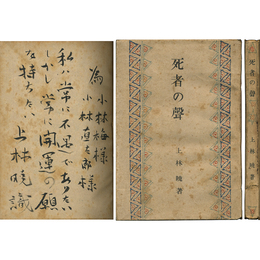 為小林梅様
小林直太郎様
私ハ常に不遇でありたい
しかし常に開運の願
を持ちたい
上林暁識
死者の聲
上林暁著
死者の聲
上林暁著